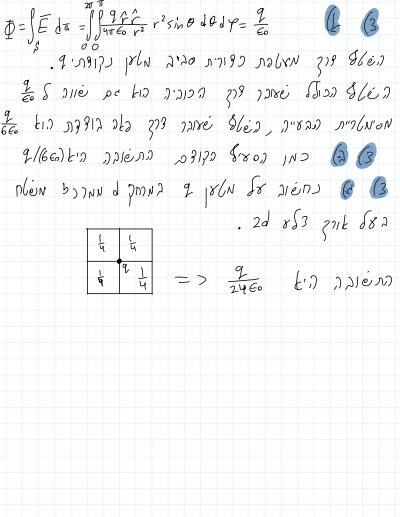 (3 (1 Φ = ∫_S E̅ da̅ = ∫_0^{2π} ∫_0^{π} (q r̂ · r̂)/(4πε0 r²) r² sinθ dθ dφ = q/ε0
השטף דרך מעטפת כדורית סביב מטען נקודתי q.
השטף הכולל שעובר דרך הקוביה הוא גם שווה ל q/ε0
מסימטריית הבעייה, השטף שעובר דרך פאה בודדת הוא q/6ε0
(3 (2 כמו הסעיף הקודם התשובה היא q/(6ε0)
(3 נחשוב על מטען q במרחק d ממרכז משטח
בעל אורך צלע 2d.
1/4 1/4
1/4 q 1/4
התשובה היא q/24ε0 <=